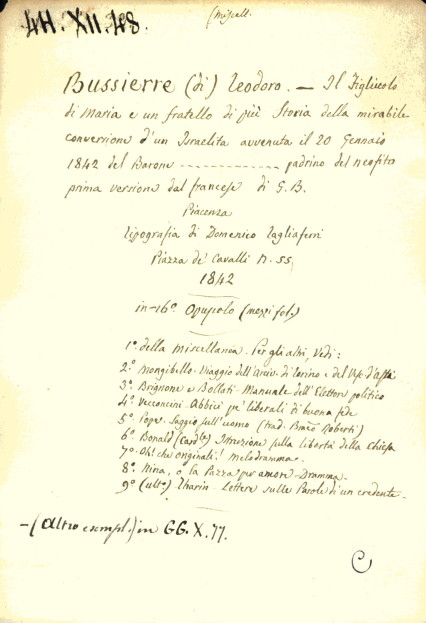 4H.XII.48.
(Miscell.
Bussierre (di) Teodoro. — Il Figliuolo
di Maria e un fratello di più Storia della mirabile
conversione d'un Israelita avvenuta il 20 Gennaio
1842 del Barone ------------- padrino del neofito
prima versione dal francese di G.B.
Piacenza
Tipografia di Domenico Tagliaferri
Piazza de' Cavalli n. 55
1842
in-16° Opuscolo (mezzi fol.)
1° della Miscellanea. Per gli altri, Vedi:
2° Mongibello - Viaggio dell'Arciv. di Torino e del Vesc. d'Asti
3° Brignone e Bolloti - Manuale dell'Elettore politico
4° Vecconcini - Abbici pe' liberali di buona fede
5° Pope. Saggio sull'uomo (trad. Roberti)
6° Bonald (Card.le) Istruzione sulla libertà della Chiesa
7° Oh! che originali! Melodramma.
8° Nina, o la Pazza per amore - Dramma.
9° (ult°) - Lettere sulle Parole di un credente.
- (Altro esempl.) in GG.X.77.
C